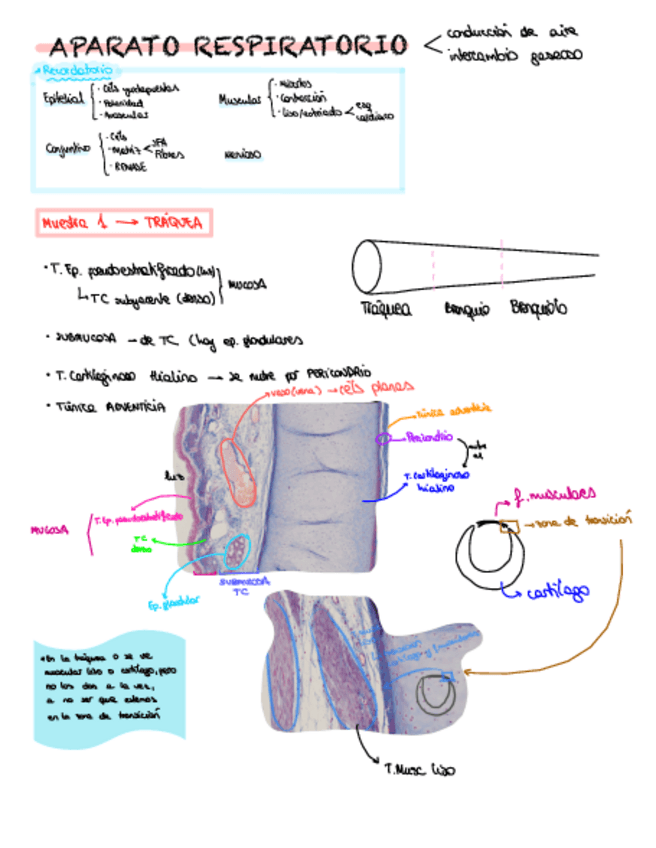 APARATO RESPIRATORIO
conducción de aire
intercambio gaseoso
Recordatorio
Epitelial
· Céls yuxtapuestas
· Polaridad
· Avascular
Muscular
· Miocitos
· Contracción
· Liso/estriado
esq
cardiaco
Conjuntivo
· Céls
· Matriz
SFA
Fibras
nervioso
Muestra 1 → TRÁQUEA
· T. Ep. pseudoestratificado (luz)
↳ TC subyacente (denso)
MUCOSA
Tráquea
Bronquio
Bronquiolo
· SUBMUCOSA → de TC (hay ep. glandulares
· T. Cartilaginoso Hialino → se nutre por PERICONDRIO
· Túnica ADVENTICIA
vaso (vena) → céls planas
Túnica adventicia
Pericondrio
nutre
al
T. cartilaginoso
hialino
luz
MUCOSA
T. Ep. pseudoestratificado
TC
denso
Ep. glandular
SUBMUCOSA
TC
f. musculares
→ zona de transición
cartílago
*En la tráquea o se ve
muscular liso o cartílago, pero
no los dos a la vez,
a no ser que estemos
en la zona de transición
T. Musc liso